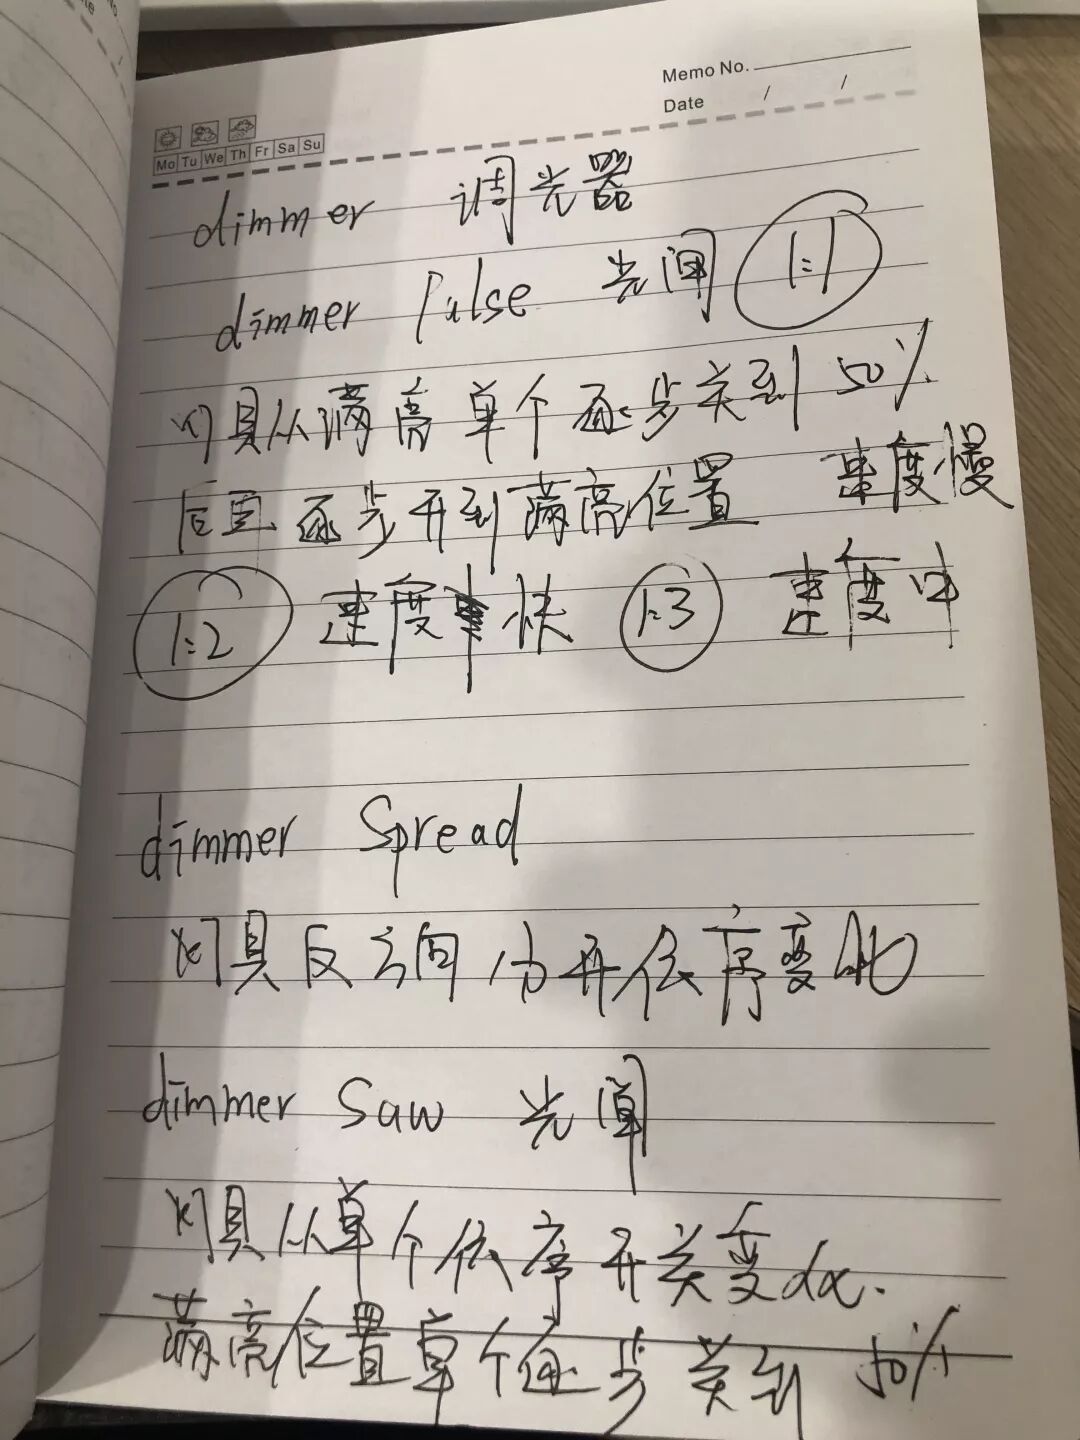 Memo No.
Date / /
Mo Tu We Th Fr Sa Su
dimmer 调光器
dimmer Pulse 光闸 1:1
灯具从满亮单个逐步关到 50%
后再逐步开到满亮位置 速度慢
1:2 速度快 1:3 速度中
dimmer Spread
灯具反方向分开依序变化
dimmer Saw 光闸
灯具从单个依序开关变
满亮位置单个逐步关到 50%